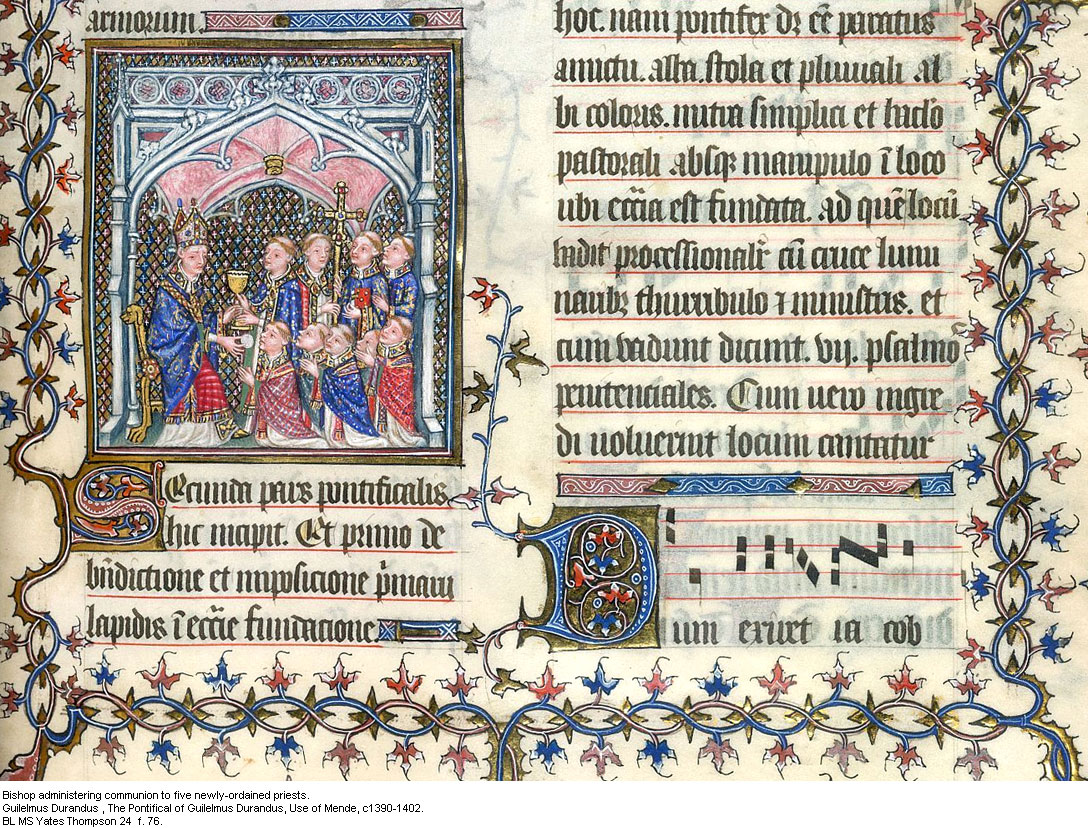 armorum.
Secunda pars pontificalis
hic incipit. Et primo de
bn̄dictione et inposicione p̄marii
lapidis ī ecc̄ie fundacione
hoc. nam pontifex dꝫ ēē paratus
amictu. alba. stola et pluuiali al
bi coloris. mitra simplici et baclō
pastorali absqꝫ manipulo ī loco
ubi ecc̄ia est fundata. ad quē locū
uadit processionalr̄ cū cruce lumi
naribꝫ thuribulo ⁊ ministris. et
cum vadunt dicunt. vij. psalmō
penitenciales. Cum uero ingre
di uoluerint locum cantatur
Dum exiret ia cob
Bishop administering communion to five newly-ordained priests.
Guilelmus Durandus , The Pontifical of Guilelmus Durandus, Use of Mende, c1390-1402.
BL MS Yates Thompson 24 f. 76.